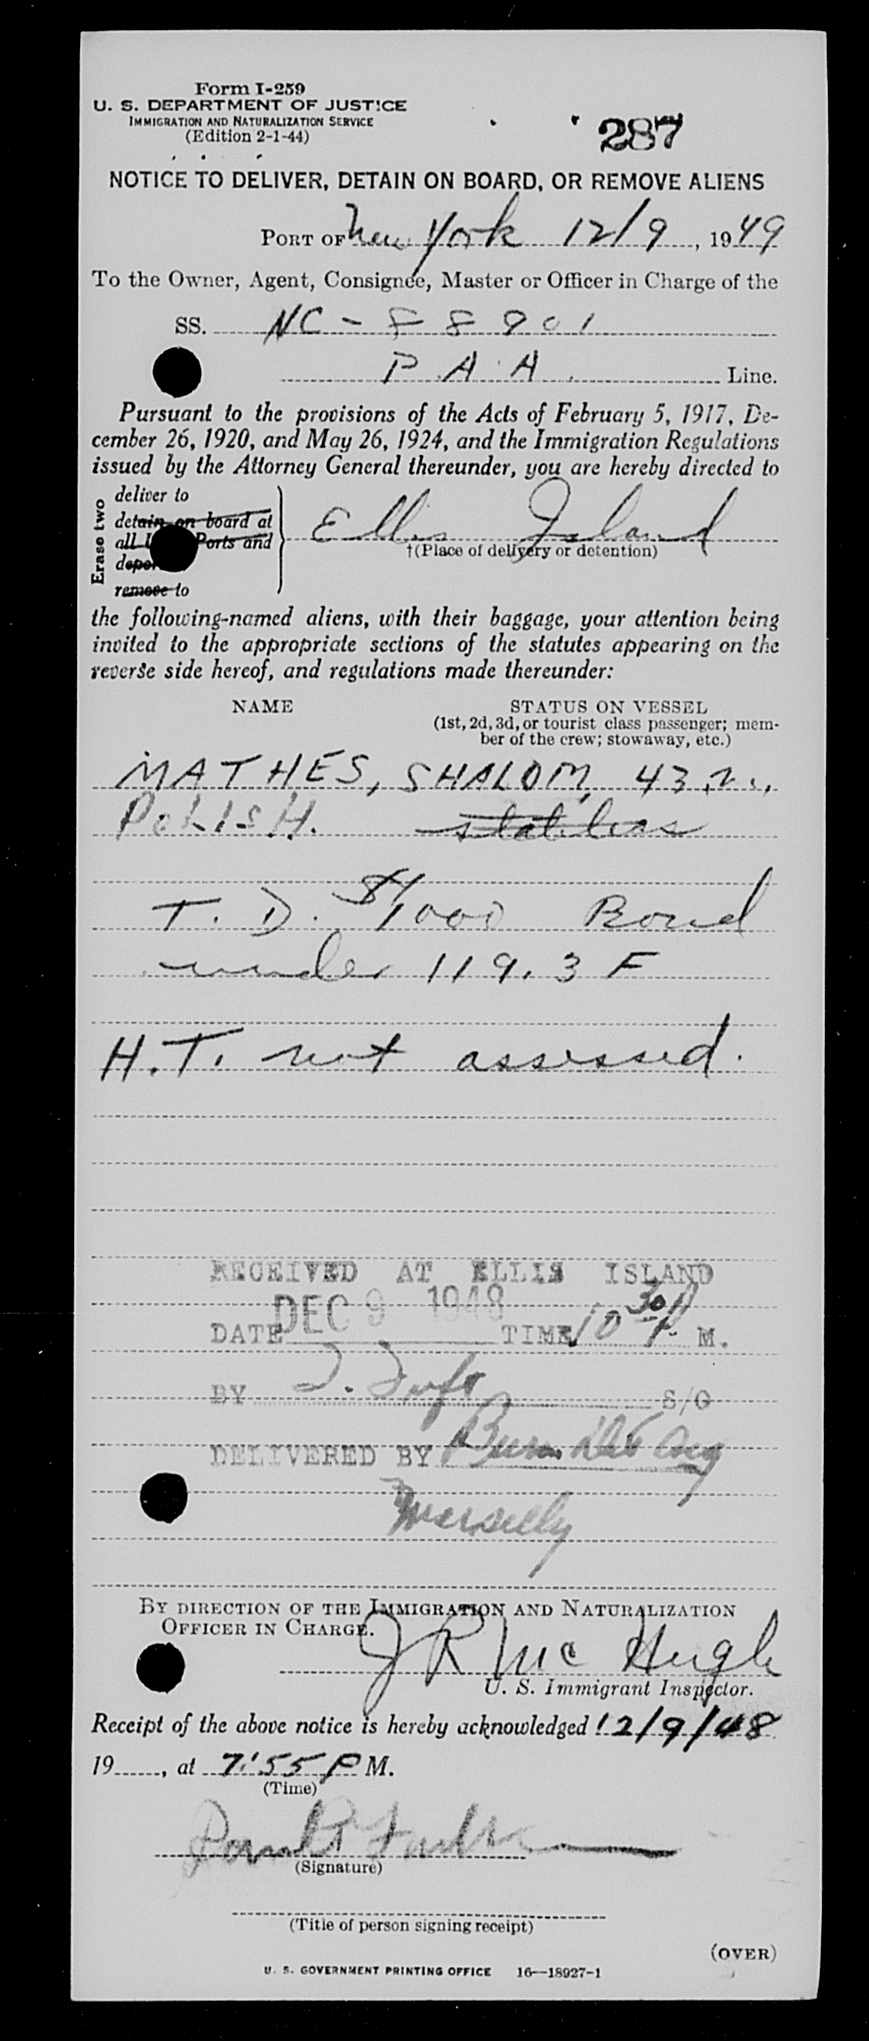 Form I-259
U. S. DEPARTMENT OF JUSTICE
IMMIGRATION AND NATURALIZATION SERVICE
(Edition 2-1-44)
287
NOTICE TO DELIVER, DETAIN ON BOARD, OR REMOVE ALIENS
PORT OF New York 12/9, 1949
To the Owner, Agent, Consignee, Master or Officer in Charge of the
SS. NC-88901
P A A Line.
Pursuant to the provisions of the Acts of February 5, 1917, De-
cember 26, 1920, and May 26, 1924, and the Immigration Regulations
issued by the Attorney General thereunder, you are hereby directed to
Erase two
deliver to
detain on board at
all Ports and
remove to
Ellis Island
†(Place of delivery or detention)
the following-named aliens, with their baggage, your attention being
invited to the appropriate sections of the statutes appearing on the
reverse side hereof, and regulations made thereunder:
NAME STATUS ON VESSEL
(1st, 2d, 3d, or tourist class passenger; mem-
ber of the crew; stowaway, etc.)
MATHES, SHALOM, 43,
POLISH.
T. D. $1000 Bond
under 119.3 F
H.T. not assessed.
RECEIVED AT ELLIS ISLAND
DATE DEC 9 1948 TIME 10 30 P. M.
BY S/O
DELIVERED BY
BY DIRECTION OF THE IMMIGRATION AND NATURALIZATION
OFFICER IN CHARGE.
J R McHugh
U. S. Immigrant Inspector.
Receipt of the above notice is hereby acknowledged 12/9/48
19, at 7:55 P M.
(Time)
(Signature)
(Title of person signing receipt)
(OVER)
U. S. GOVERNMENT PRINTING OFFICE 16—18927-1